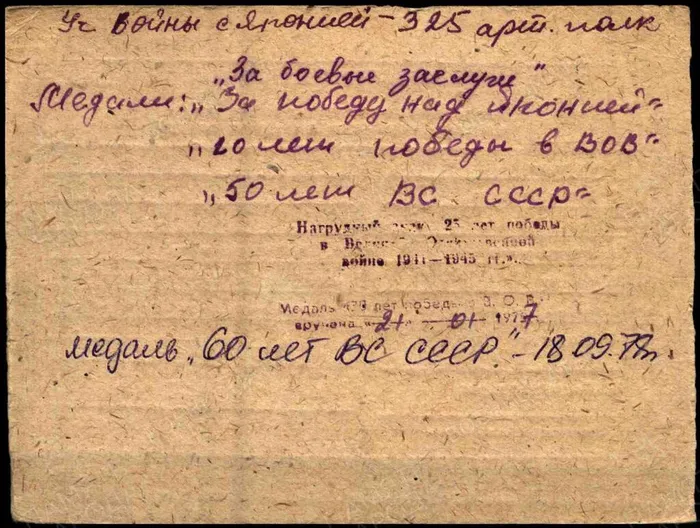 Уч войны с Японией – 325 арт. полк
„За боевые заслуги"
Медали: „За победу над Японией"
„20 лет победы в ВОВ"
„50 лет ВС СССР"
Нагрудный знак 25 лет победы
в Великой Отечественной
войне 1941—1945 гг.
Медаль «30 лет победы В. О. В.
вручена «21» 01 1977
медаль „60 лет ВС СССР." – 18.09.79г.